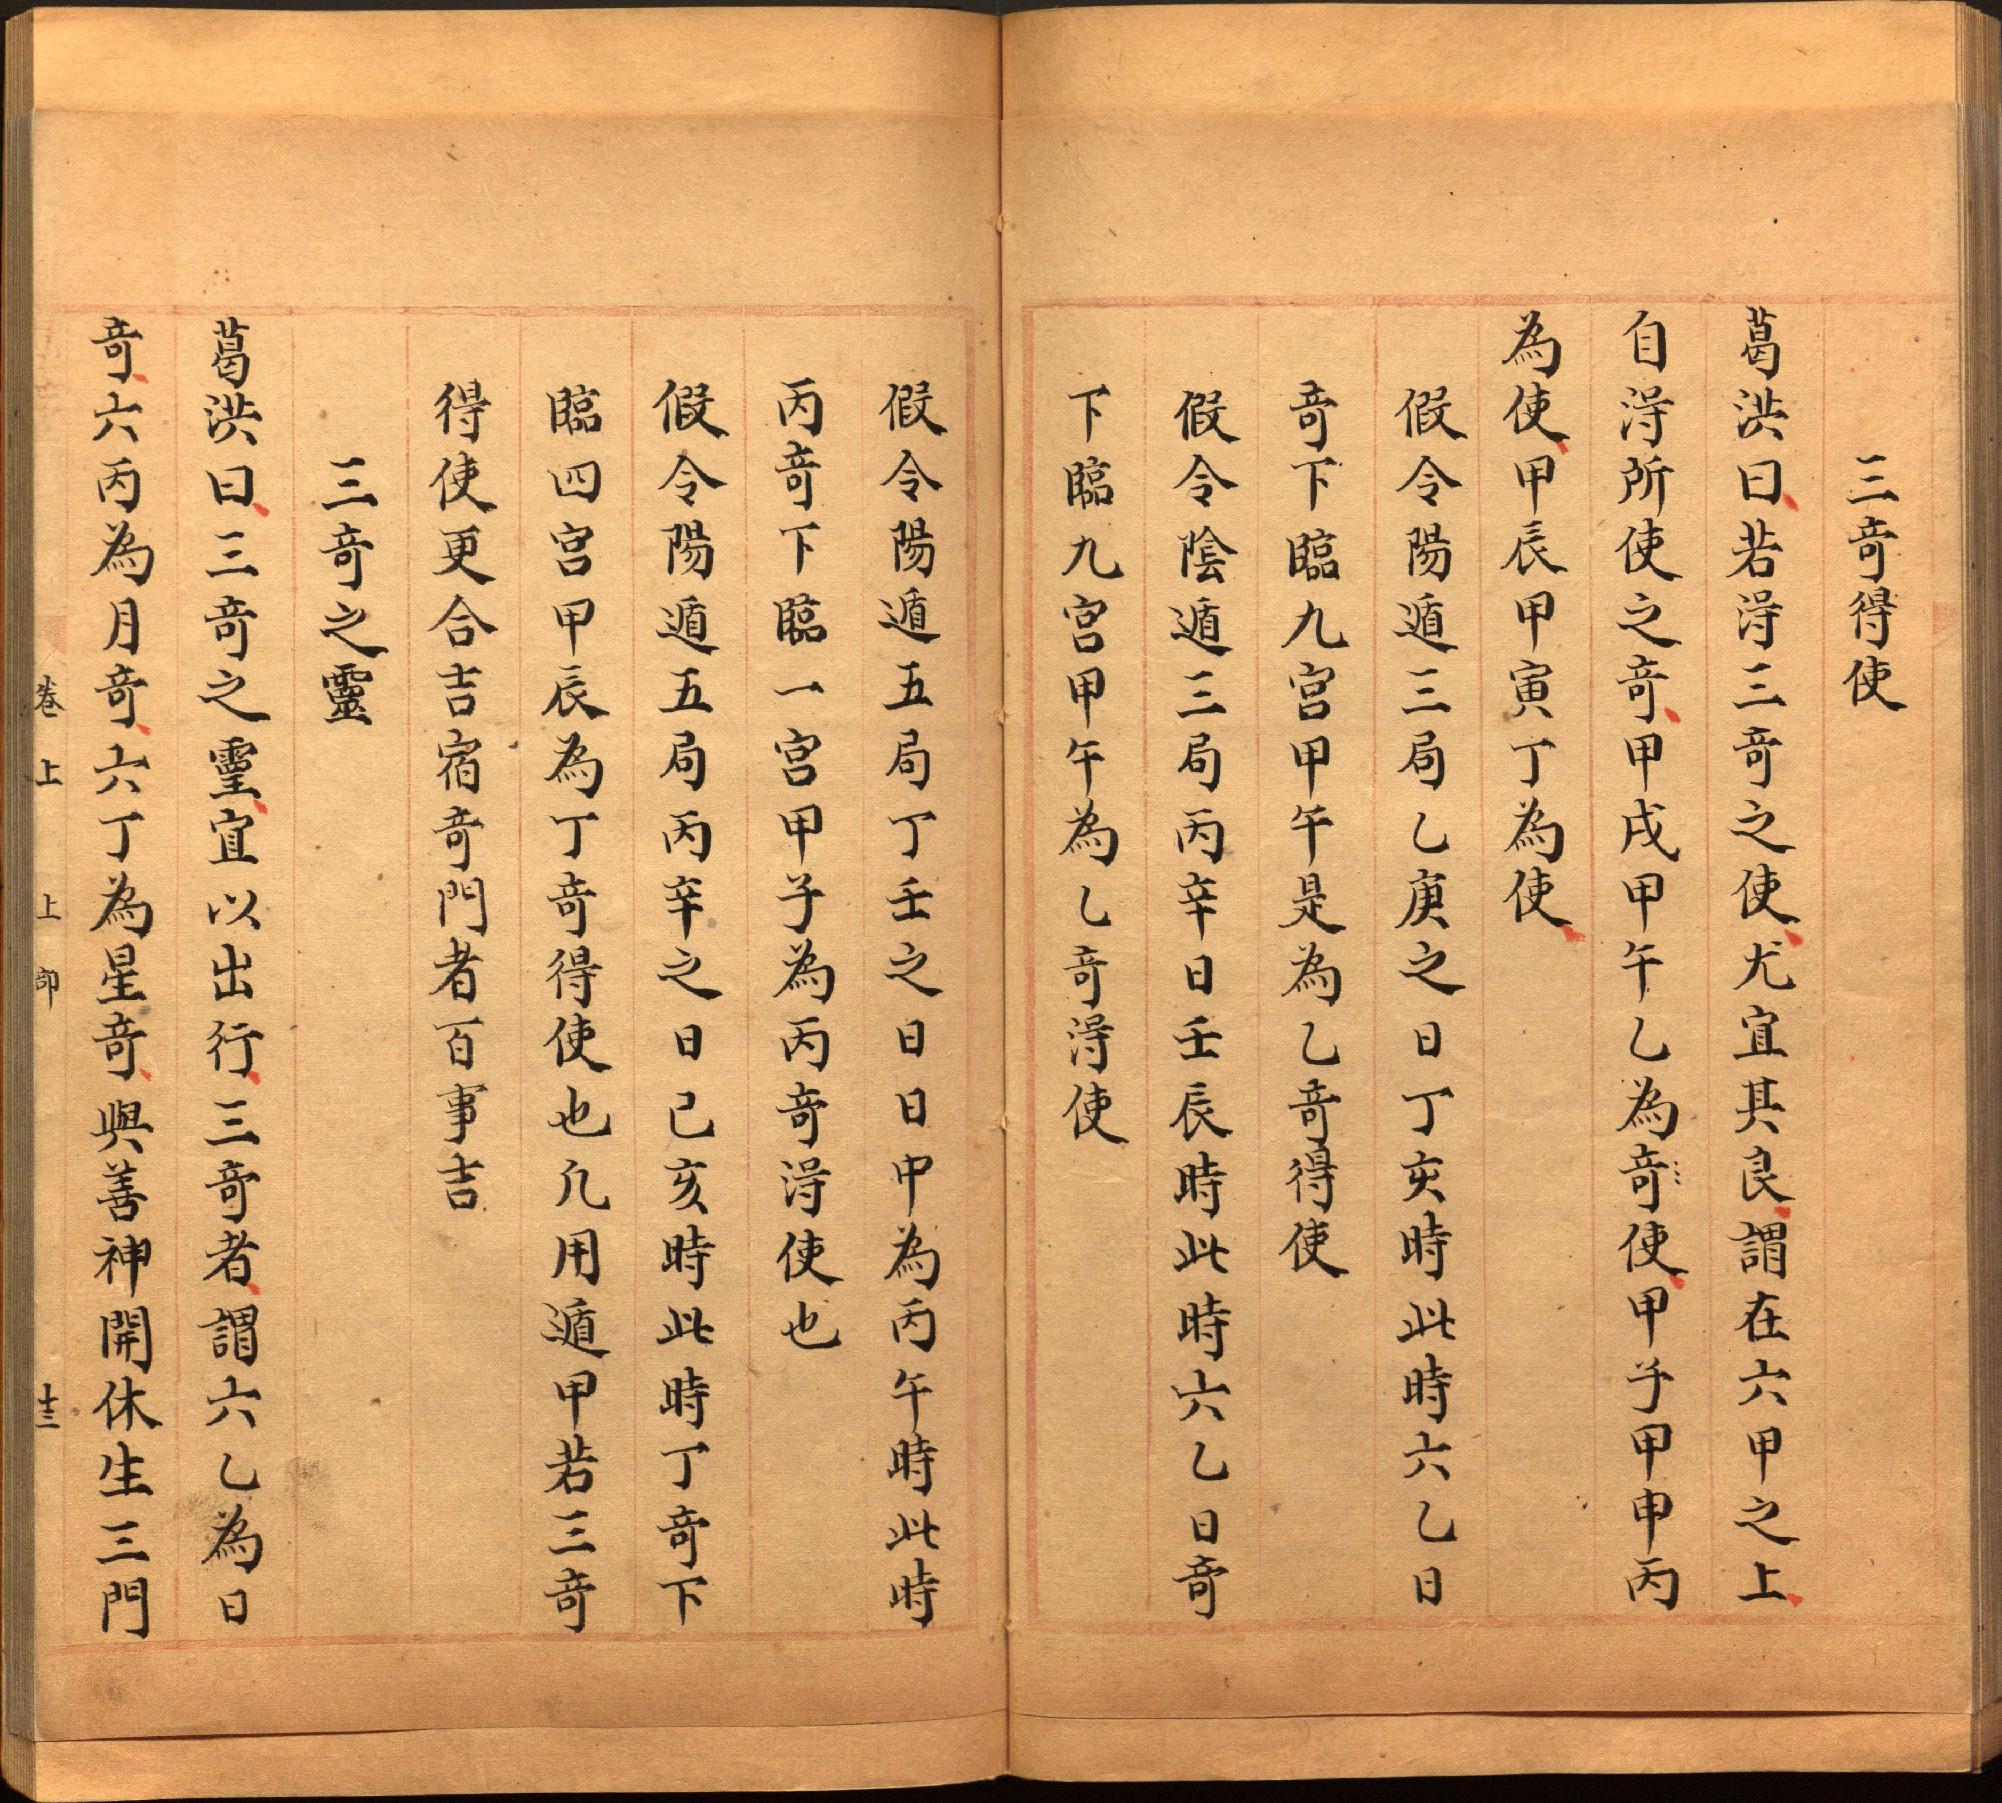 三竒得使
葛洪曰若淂三竒之使尤宜其良謂在六甲之上
自淂所使之竒甲戌甲午乙為竒使甲子甲申丙
為使甲辰甲寅丁為使
假令陽遁三局乙庚之日丁亥時此時六乙日
竒下臨九宮甲午是為乙竒得使
假令陰遁三局丙辛日壬辰時此時六乙日竒
下臨九宮甲午為乙竒淂使
假令陽遁五局丁壬之日日中為丙午時此時
丙竒下臨一宮甲子為丙竒淂使也
假令陽遁五局丙辛之日己亥時此時丁竒下
臨四宮甲辰為丁竒得使也凢用遁甲若三竒
得使更合吉宿竒門者百事吉
三竒之靈
葛洪曰三竒之靈宜以出行三竒者謂六乙為日
竒六丙為月竒六丁為星竒與善神開休生三門
卷上 上部 十三